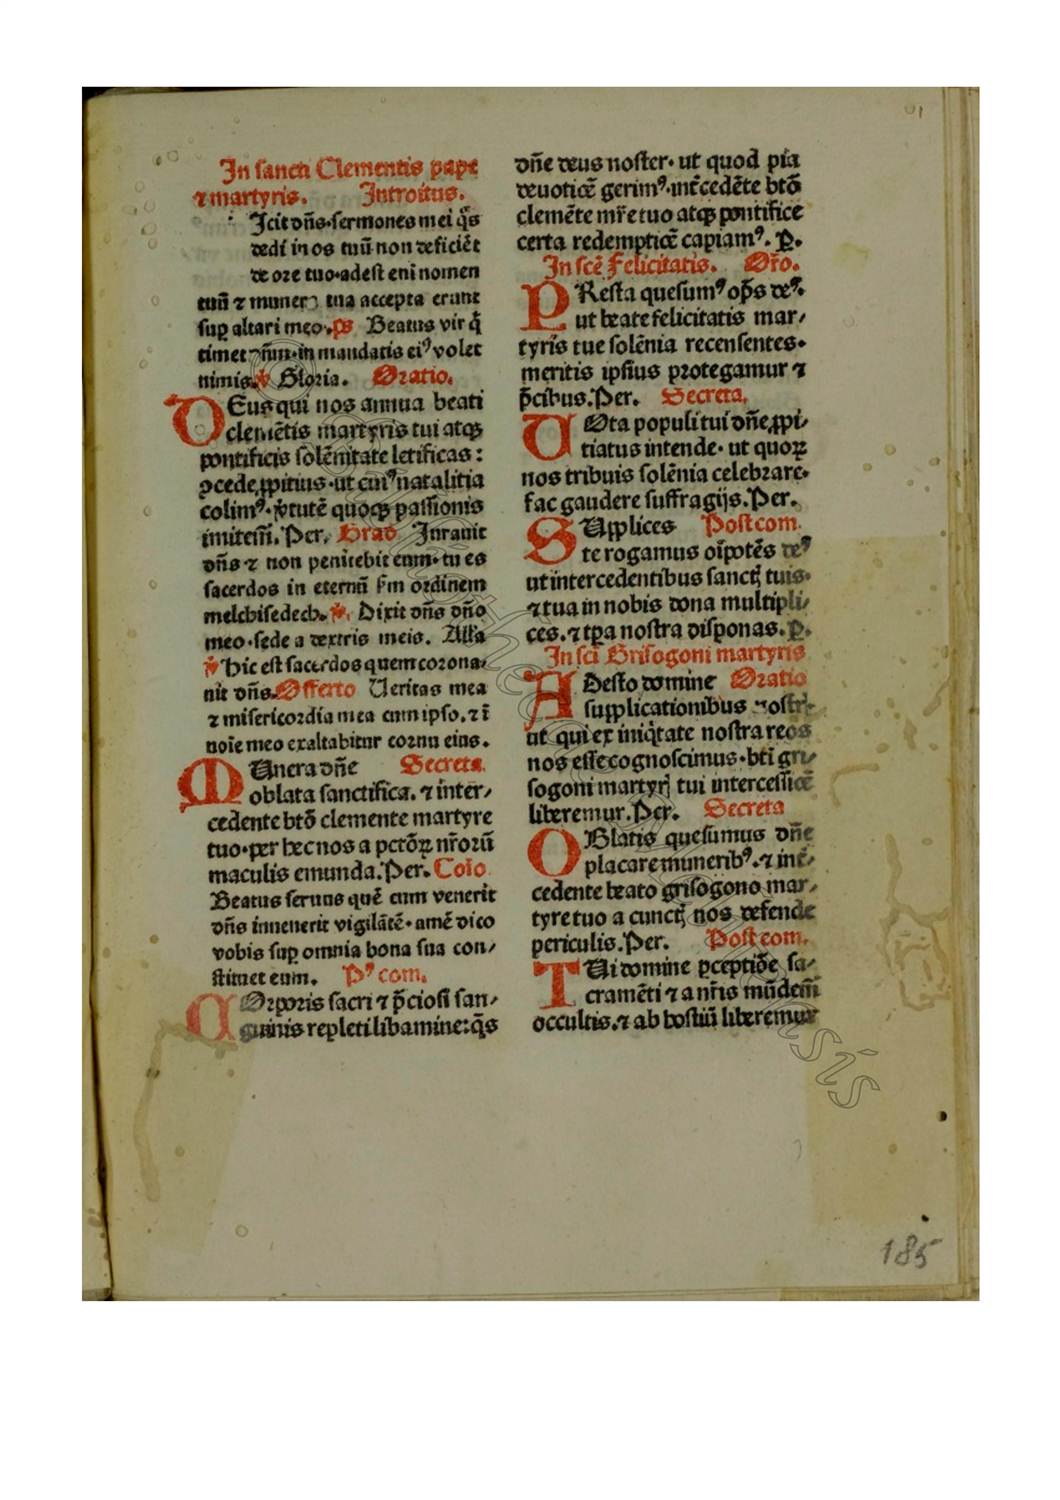 In sancti Clementis pape
⁊ martyris. Introitus.
Icit dn̄s·sermones mei q̄s
dedi in os tuū non deficiēt
de ore tuo·adest eni nomen
tuū ⁊ munera tua accepta erunt
sup altari meo·ps Beatus vir q̄
timet dn̄m·in mandatis ei⁹ volet
nimis.℣ Gloria. Oratio.
DEus qui nos annua beati
clemētis martyris tui atqꝫ
pontificis solēnitate letificas:
ꝯcede,ꝓpitius·ut cui⁹ natalitia
colim⁹·v̓tutē quoqꝫ passionis
imitem̄. Per. Grad Iurauit
dn̄s ⁊ non penitebit eum·tu es
sacerdos in eternū s̄m ordinem
melchisedech.℣. Dixit dn̄s dn̄o
meo·sede a dextris meis. Alľa
℣ Hic est sacerdos quem corona⸗
uit dn̄s. Offerto Ueritas mea
⁊ misericordia mea cum ipso.⁊ ī
noīe meo exaltabitur cornu eius.
MUnera dn̄e Secreta.
oblata sanctifica.⁊ inter⸗
cedente btō clemente martyre
tuo·per hec nos a pctōꝝ nr̄orū
maculis emunda. Per. Cōīo
Beatus seruus quē cum venerit
dn̄s inuenerit vigilātē·amē dico
vobis suꝑ omnia bona sua con⸗
stituet eum. P⁹ com.
COrporis sacri ⁊ p̄ciosi san⸗
guinis repleti libamine:q̄s
dn̄e deus noster·ut quod pia
deuotiōe gerim⁹·int̄cedēte btō
clemēte mr̄e tuo atqꝫ pontifice
certa redemptiōe capiam⁹. P̲.
In scē Felicitatis. Or̄o.
PResta quesum⁹ op̄s de⁹.
ut beate felicitatis mar⸗
tyris tue solēnia recensentes·
meritis ipsius protegamur ⁊
p̄cibus. Per. Secreta.
UOta populi tui dn̄e,ꝓpi⸗
tiatus intende·ut quoꝝ
nos tribuis solēnia celebrare·
fac gaudere suffragijs. Per.
SUpplices Postcom.
te rogamus oīpotēs de⁹
ut intercedentibus sanctꝭ tuis·
⁊ tua in nobis dona multipli⸗
ces.⁊ tp̄a nostra disponas. P̲.
In sci Grisogoni martyris
ADesto domine Oratio
supplicationibus nostris
ut qui ex iniq̄tate nostra reos
nos esse cognoscimus·bti gri⸗
sogoni martyrꝭ tui intercessiōe
liberemur. Per. Secreta
OBlatis quesumus dn̄e
placare munerib⁹.⁊ int̄⸗
cedente beato grisogono mar⸗
tyre tuo a cunctꝭ nos defende
periculis. Per. Postcom.
TUi domine ꝑceptiōe sa⸗
cramēti ⁊ a nr̄is mūdem̄
occultis.⁊ ab hostiū liberemur
185